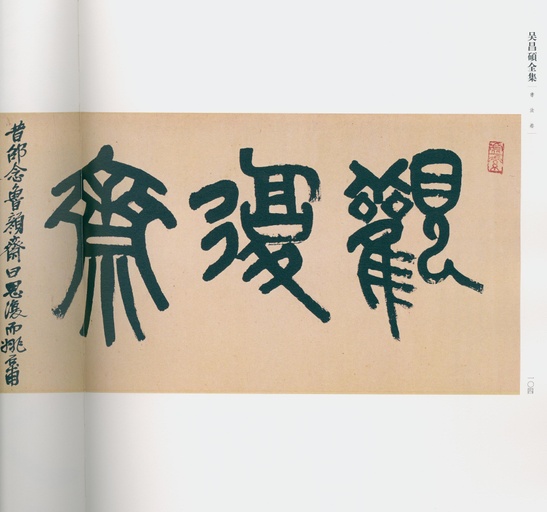 吴昌碩全集
書法卷
觀復齋
昔邵念魯顏齋曰思復而姚
一〇四